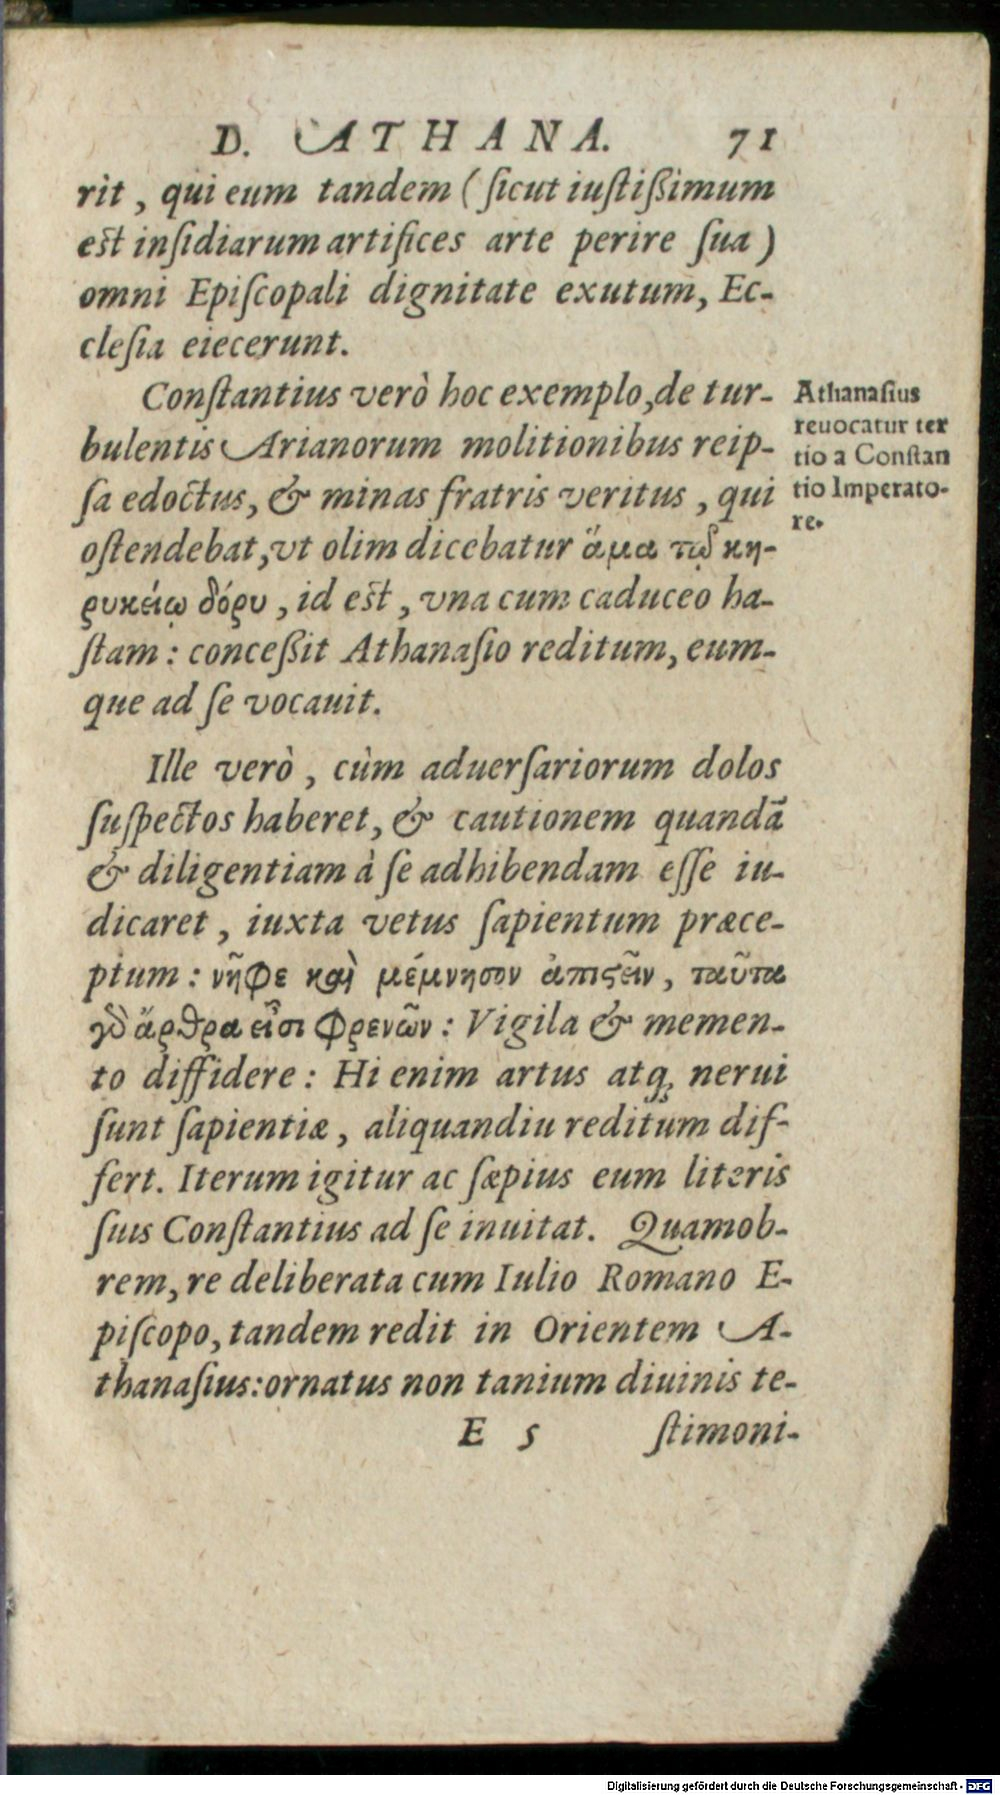 D. ATHANA. 71
rit, qui eum tandem (ſicut iuſtißimum
est inſidiarum artifices arte perire ſua)
omni Epiſcopali dignitate exutum, Ec-
cleſia eiecerunt.
Conſtantius verò hoc exemplo, de tur-
bulentis Arianorum molitionibus reip-
ſa edoctus, & minas fratris veritus, qui
oſtendebat, vt olim dicebatur ἅμα τῷ κη-
ρυκείῳ δόρυ, id est, vna cum caduceo ha-
ſtam: conceßit Athanaſio reditum, eum-
que ad ſe vocauit.
Athanaſius
reuocatur ter
tio a Conſtan
tio Imperato-
re.
Ille verò, cùm aduerſariorum dolos
ſuſpectos haberet, & cautionem quandã
& diligentiam à ſe adhibendam eſſe iu-
dicaret, iuxta vetus ſapientum præce-
ptum: νῆφε καὶ μέμνησον ἀπιϛεῖν, ταῦτα
γὸ ἄρθρα εἶσι φρενῶν: Vigila & memen-
to diffidere: Hi enim artus atq; nerui
ſunt ſapientiæ, aliquandiu reditum dif-
fert. Iterum igitur ac ſæpius eum literis
ſuis Conſtantius ad ſe inuitat. Quamob-
rem, re deliberata cum Iulio Romano E-
piſcopo, tandem redit in Orientem A-
thanaſius: ornatus non tantum diuinis te-
E 5 ſtimoni-
Digitalisierung gefördert durch die Deutsche Forschungsgemeinschaft - DFG